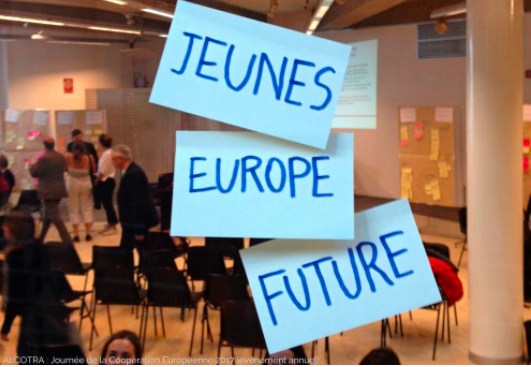 JEUNES
EUROPE
FUTURE
ALCOTRA : Journée de la Coopération Européenne 2017 (evenement annuel)